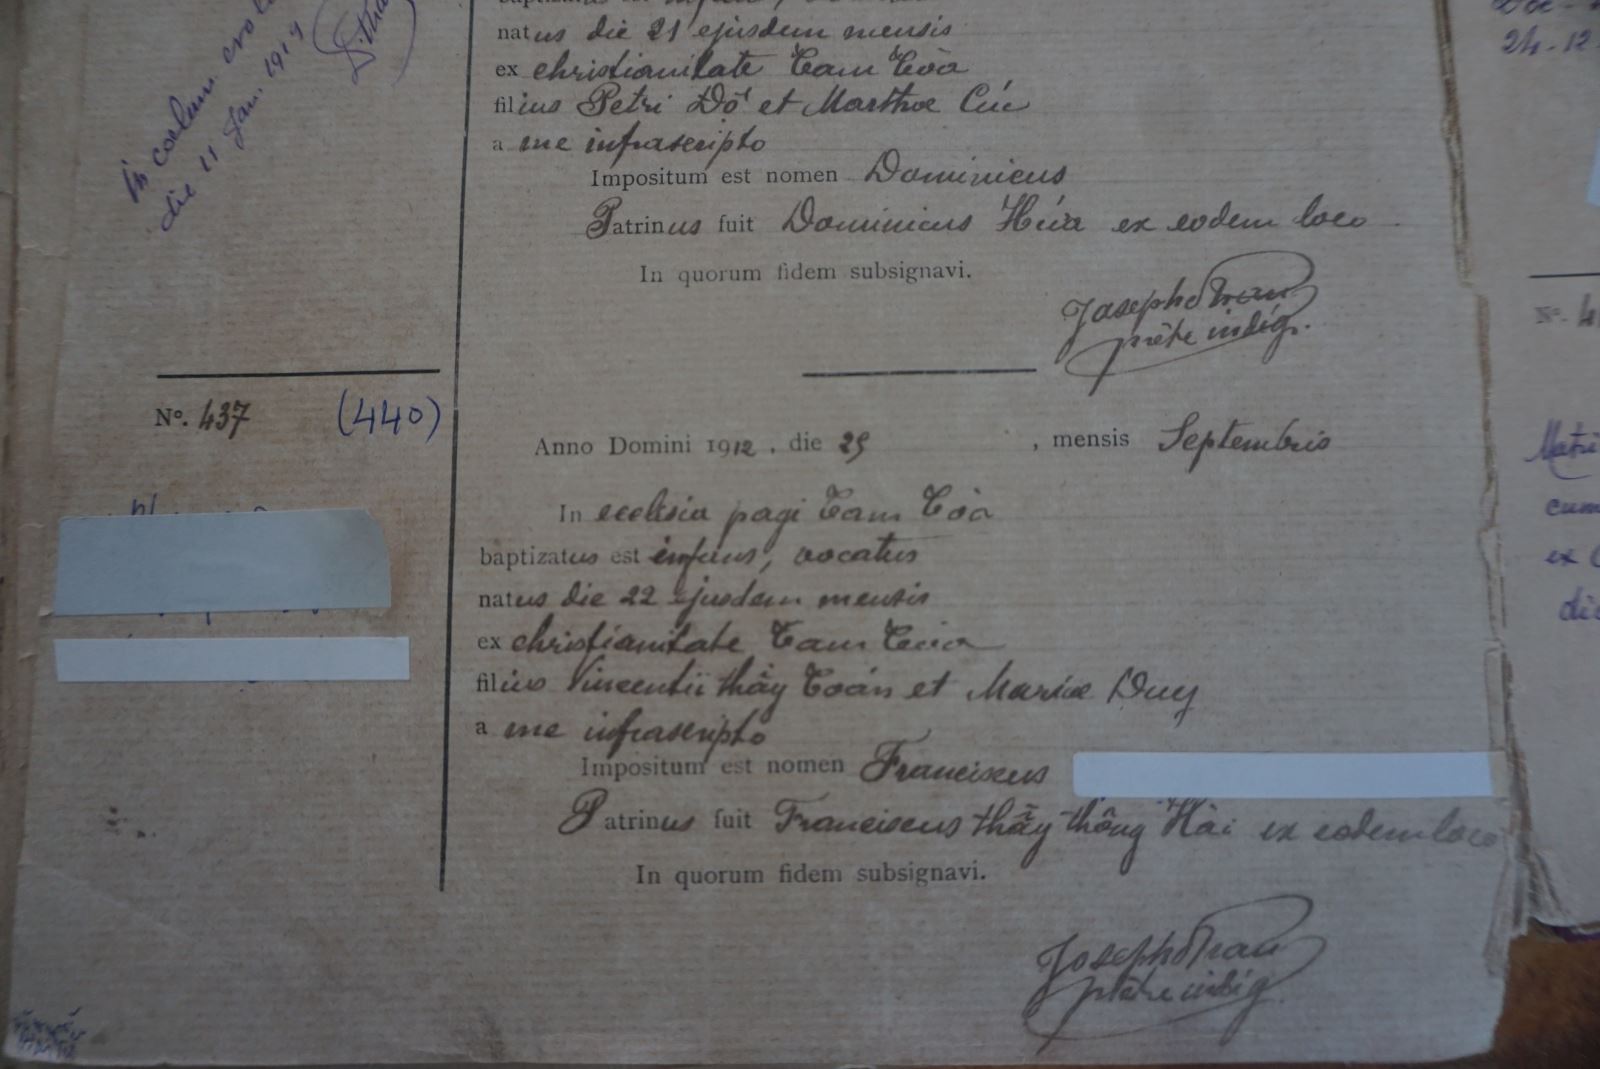 In coelum evol
die 11 Jan. 1914
natus die 21 ejusdem mensis
ex christianitate Tam Tòa
filius Petri Đô et Marthae Cúc
a me infrascripto
Impositum est nomen Dominicus
Patrinus fuit Dominicus Hứa ex eodem loco
In quorum fidem subsignavi.
Joseph Tran
prêtre indig.
Nº. 437 (440)
Anno Domini 1912, die 29, mensis Septembris
In ecclesia pagi Tam Tòa
baptizatus est infans, vocatus
natus die 22 ejusdem mensis
ex christianitate Tam Tòa
filius Vincentii thầy Toán et Mariae Duy
a me infrascripto
Impositum est nomen Franciscus
Patrinus fuit Franciscus thầy thông Hài ex eodem loco
In quorum fidem subsignavi.
Joseph Tran
prêtre indig.
24-12
Nº. 4
Matri
cum
ex
die